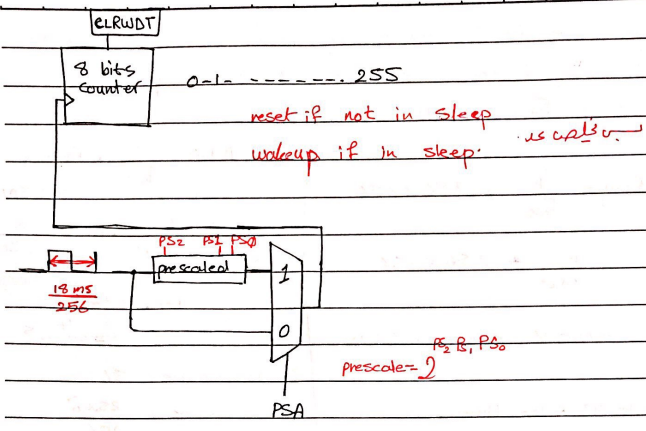 CLRWDT
8 bits
Counter
0-1- - - - - - - - . 255
reset if not in sleep
wakeup if in sleep.
PS2 PS1 PS0
prescaled
18 ms
256
1
0
prescale = 2^PS2 PS1 PS0
PSA